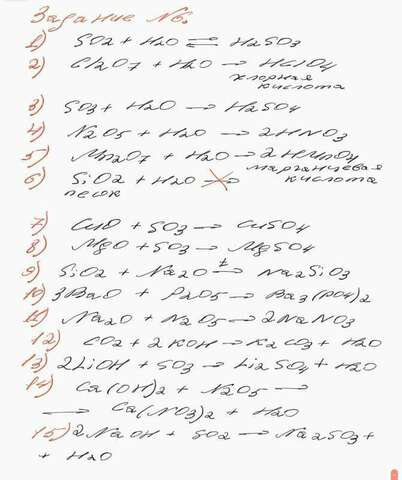 Задание №6.
1) SO2 + H2O ⇌ H2SO3
2) Cl2O7 + H2O → HClO4
хлорная
кислота
3) SO3 + H2O → H2SO4
4) N2O5 + H2O → 2HNO3
5) Mn2O7 + H2O → 2HMnO4
марганцевая
6) SiO2 + H2O ↛ кислота
песок
7) CuO + SO3 → CuSO4
8) MgO + SO3 → MgSO4
9) SiO2 + Na2O →(t) Na2SiO3
10) 3BaO + P2O5 → Ba3(PO4)2
11) Na2O + N2O5 → 2NaNO3
12) CO2 + 2KOH → K2CO3 + H2O
13) 2LiOH + SO3 → Li2SO4 + H2O
14) Ca(OH)2 + N2O5 →
→ Ca(NO3)2 + H2O
15) 2NaOH + SO2 → Na2SO3 +
+ H2O